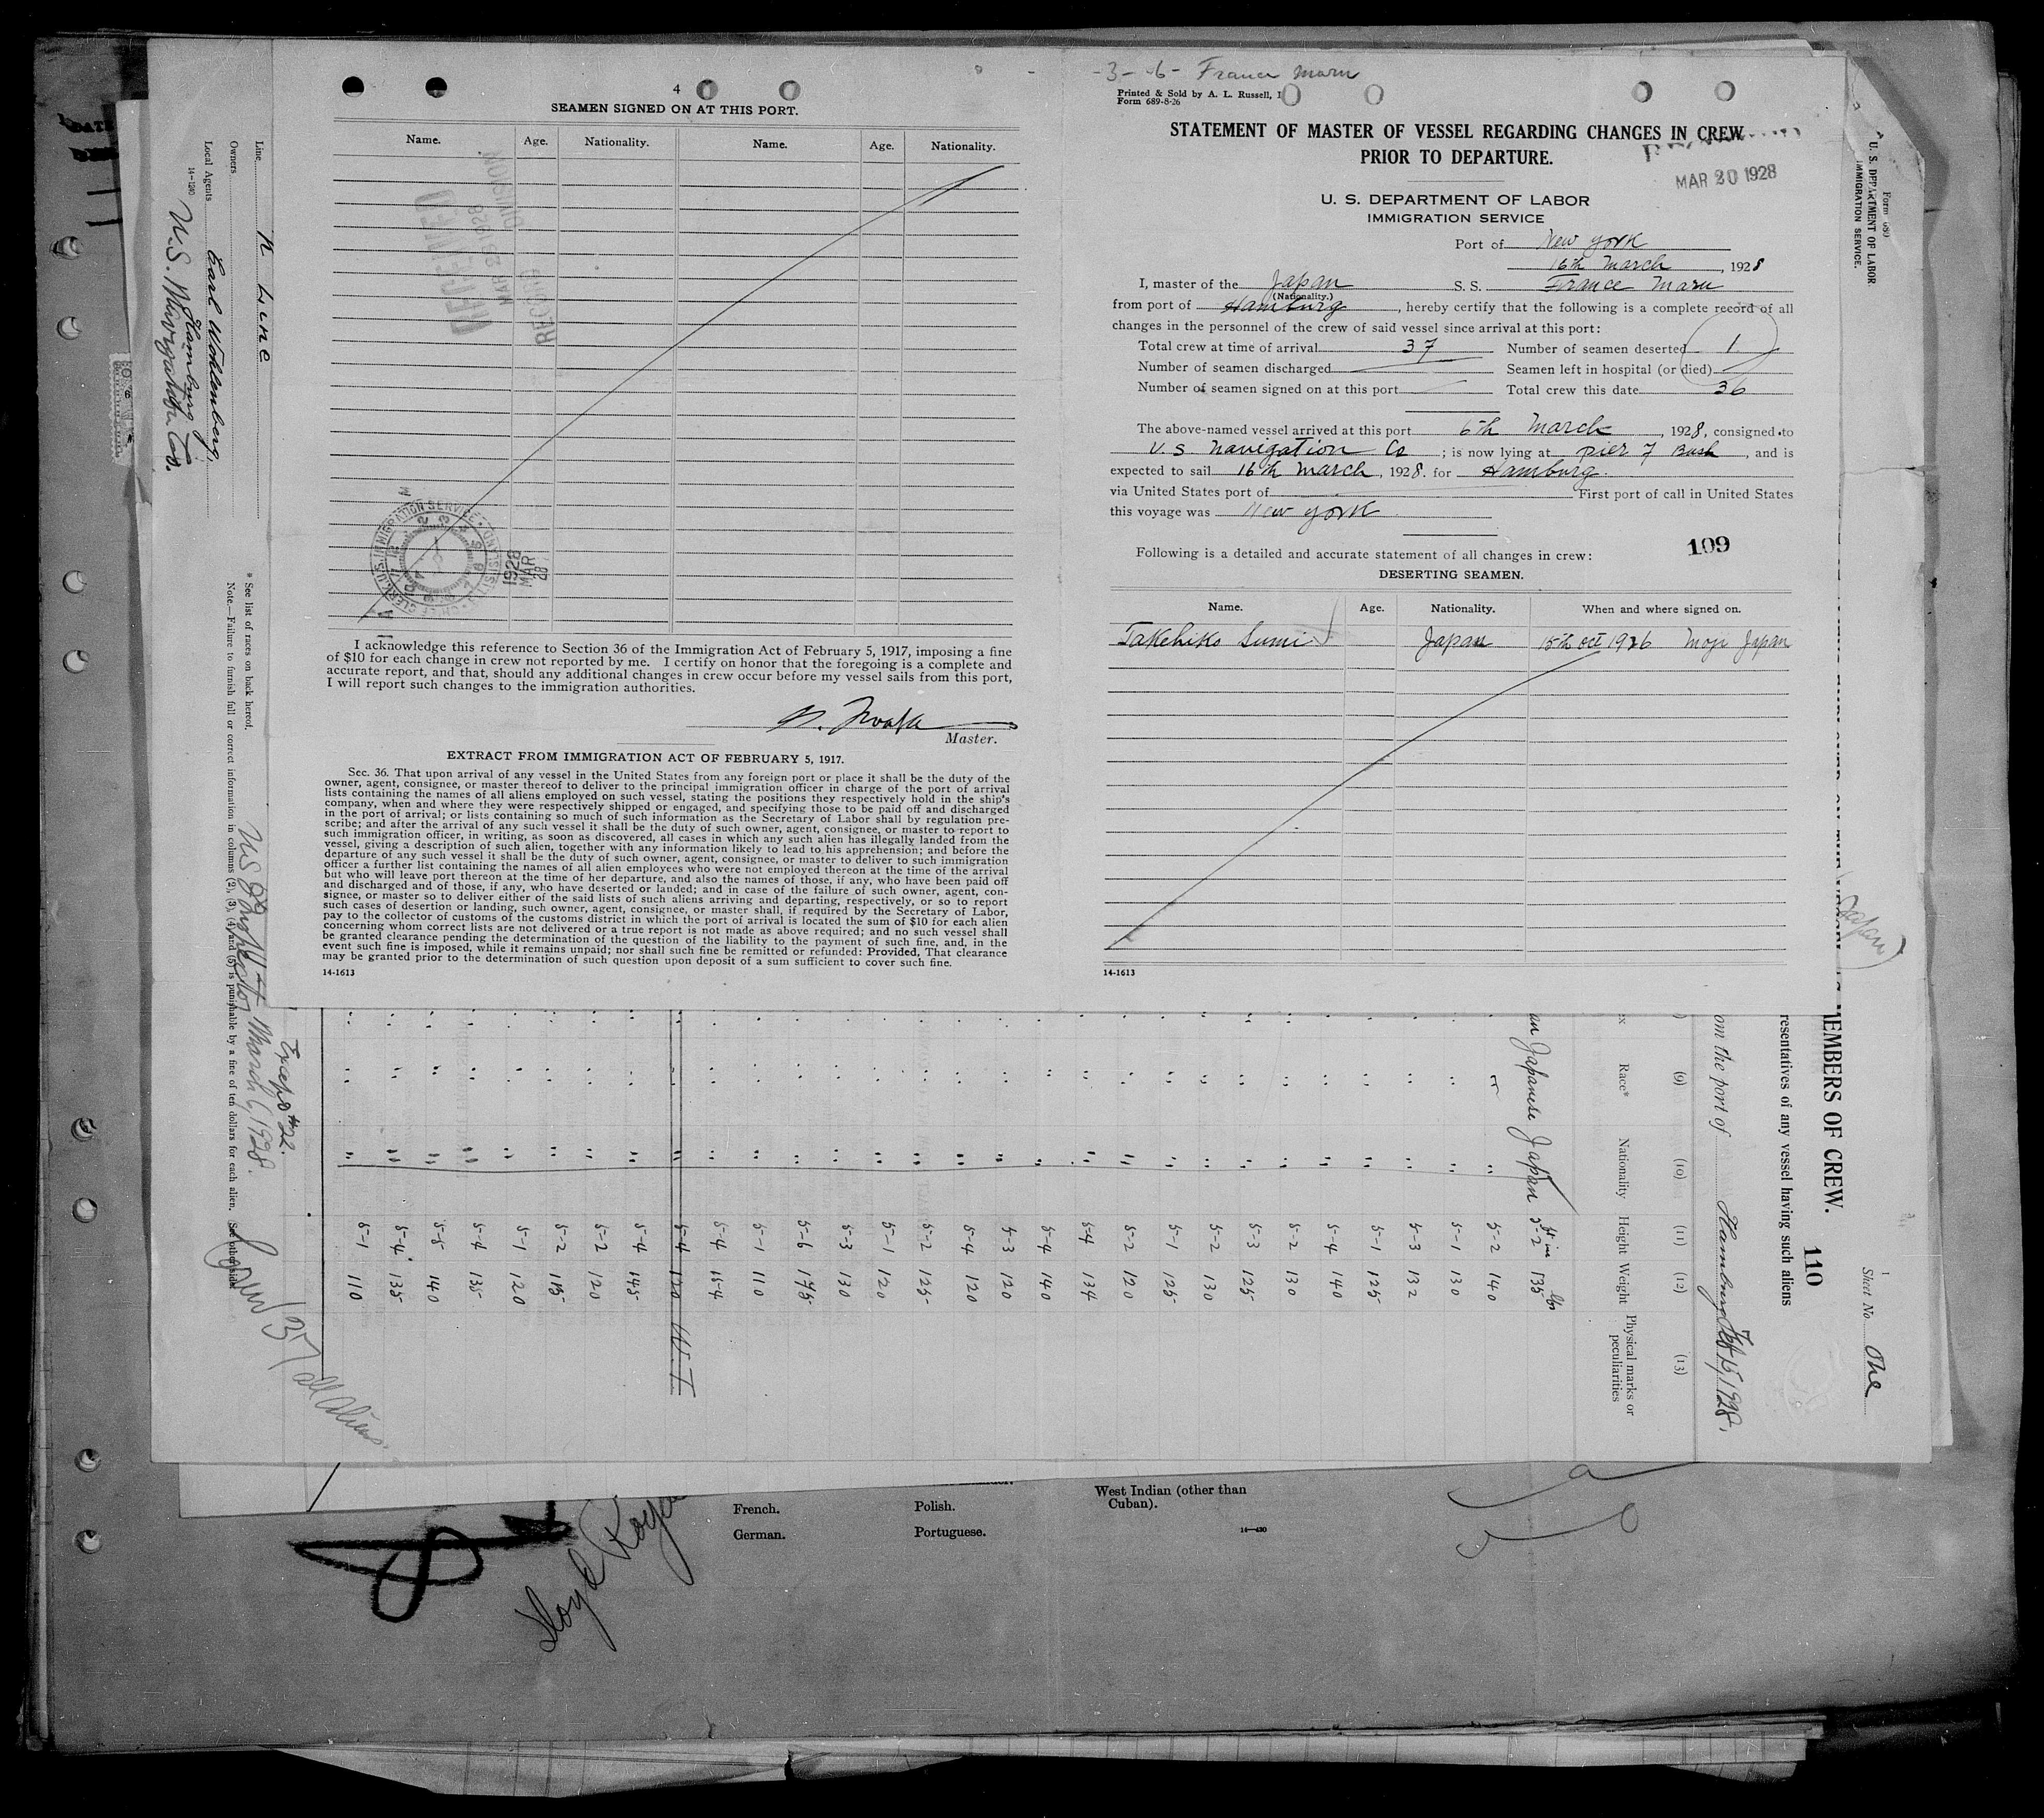 4
SEAMEN SIGNED ON AT THIS PORT.
Name. Age. Nationality. Name. Age. Nationality.
RECEIVED
MAR 23 1928
RECORD DIVISION
1928
MAR
I acknowledge this reference to Section 36 of the Immigration Act of February 5, 1917, imposing a fine
of $10 for each change in crew not reported by me. I certify on honor that the foregoing is a complete and
accurate report, and that, should any additional changes in crew occur before my vessel sails from this port,
I will report such changes to the immigration authorities.
Master.
EXTRACT FROM IMMIGRATION ACT OF FEBRUARY 5, 1917.
Sec. 36. That upon arrival of any vessel in the United States from any foreign port or place it shall be the duty of the
owner, agent, consignee, or master thereof to deliver to the principal immigration officer in charge of the port of arrival
lists containing the names of all aliens employed on such vessel, stating the positions they respectively hold in the ship's
company, when and where they were respectively shipped or engaged, and specifying those to be paid off and discharged
in the port of arrival; or lists containing so much of such information as the Secretary of Labor shall by regulation pre-
scribe; and after the arrival of any such vessel it shall be the duty of such owner, agent, consignee, or master to report to
such immigration officer, in writing, as soon as discovered, all cases in which any such alien has illegally landed from the
vessel, giving a description of such alien, together with any information likely to lead to his apprehension; and before the
departure of any such vessel it shall be the duty of such owner, agent, consignee, or master to deliver to such immigration
officer a further list containing the names of all alien employees who were not employed thereon at the time of the arrival
but who will leave port thereon at the time of her departure, and also the names of those, if any, who have been paid off
and discharged and of those, if any, who have deserted or landed; and in case of the failure of such owner, agent, con-
signee, or master so to deliver either of the said lists of such aliens arriving and departing, respectively, or so to report
such cases of desertion or landing, such owner, agent, consignee, or master shall, if required by the Secretary of Labor,
pay to the collector of customs of the customs district in which the port of arrival is located the sum of $10 for each alien
concerning whom correct lists are not delivered or a true report is not made as above required; and no such vessel shall
be granted clearance pending the determination of the question of the liability to the payment of such fine, and, in the
event such fine is imposed, while it remains unpaid; nor shall such fine be remitted or refunded: Provided, That clearance
may be granted prior to the determination of such question upon deposit of a sum sufficient to cover such fine.
14-1613
France Maru
Printed & Sold by A. L. Russell, I
Form 689-8-26
STATEMENT OF MASTER OF VESSEL REGARDING CHANGES IN CREW
PRIOR TO DEPARTURE.
MAR 20 1928
U. S. DEPARTMENT OF LABOR
IMMIGRATION SERVICE
Port of New York
16th March, 1928
I, master of the Japan S. S. France Maru
(Nationality.)
from port of Hamburg, hereby certify that the following is a complete record of all
changes in the personnel of the crew of said vessel since arrival at this port:
Total crew at time of arrival 37 Number of seamen deserted 1
Number of seamen discharged Seamen left in hospital (or died)
Number of seamen signed on at this port Total crew this date 36
The above-named vessel arrived at this port 6th March, 1928, consigned to
U. S. Navigation Co; is now lying at Pier 7 Bush, and is
expected to sail 16th March, 1928. for Hamburg.
via United States port of First port of call in United States
this voyage was New York
109
Following is a detailed and accurate statement of all changes in crew:
DESERTING SEAMEN.
Name. Age. Nationality. When and where signed on.
Takehiko Sumi Japan 15th Oct 1926 Moji Japan
14-1613
Line K Line
Owners
Local Agents Carl Wohlenberg,
Hamburg
U.S. Navigation Co.
14-1240
* See list of races on back hereof.
Note.—Failure to furnish full or correct information in columns (2), (3), (4) and (5) is punishable by a fine of ten dollars for each alien. (See other side
March 6, 1928.
Form 689
U. S. DEPARTMENT OF LABOR
IMMIGRATION SERVICE.
(Japan)
Sheet No. One
110
MEMBERS OF CREW.
resentatives of any vessel having such aliens
om the port of Hamburg Feb 15, 1928.
(9) (10) (11) (12) (13)
ex Race* Nationality Height Weight Physical marks or
peculiarities
an Japanese Japan ft in 5-2 lbs 135
5-2 140
5-1 130
5-3 132
5-1 125
5-4 140
5-2 130
5-3 125
5-2 130
5-1 125
5-2 120
5-4 134
5-4 140
5-3 120
5-4 120
5-2 125
5-1 120
5-3 130
5-6 175
5-1 110
5-4 154
5-4 120
5-4 145
5-2 120
5-2 115
5-1 120
5-4 135
5-5 140
5-4 135
5-1 110
all aliens
French. Polish. West Indian (other than
Cuban).
German. Portuguese.
14—430